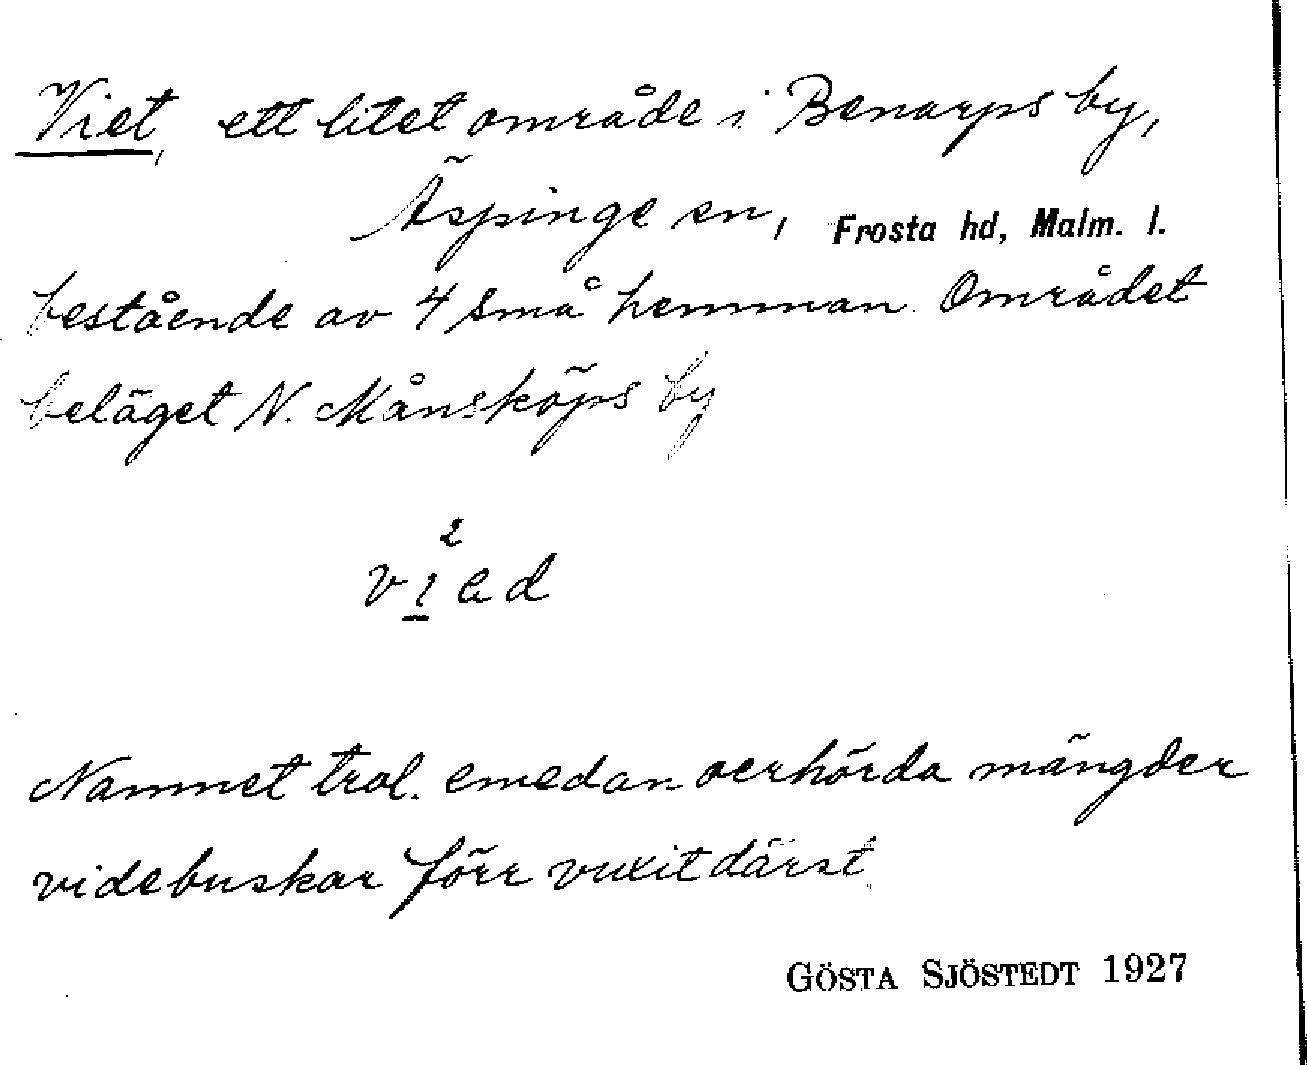 Viet, ett litet område i Benarps by,
Äspinge sn, Frosta hd, Malm. l.
bestående av 4 små hemman. Området
beläget N. Månsköps by
Namnet trol. emedan oerhörda mängder
videbuskar förr vuxit därst.
GÖSTA SJÖSTEDT 1927